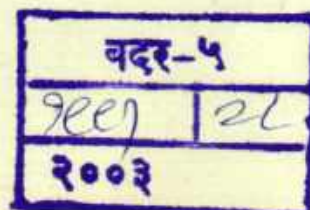 वदर-५
१९९१ | २८
२००३